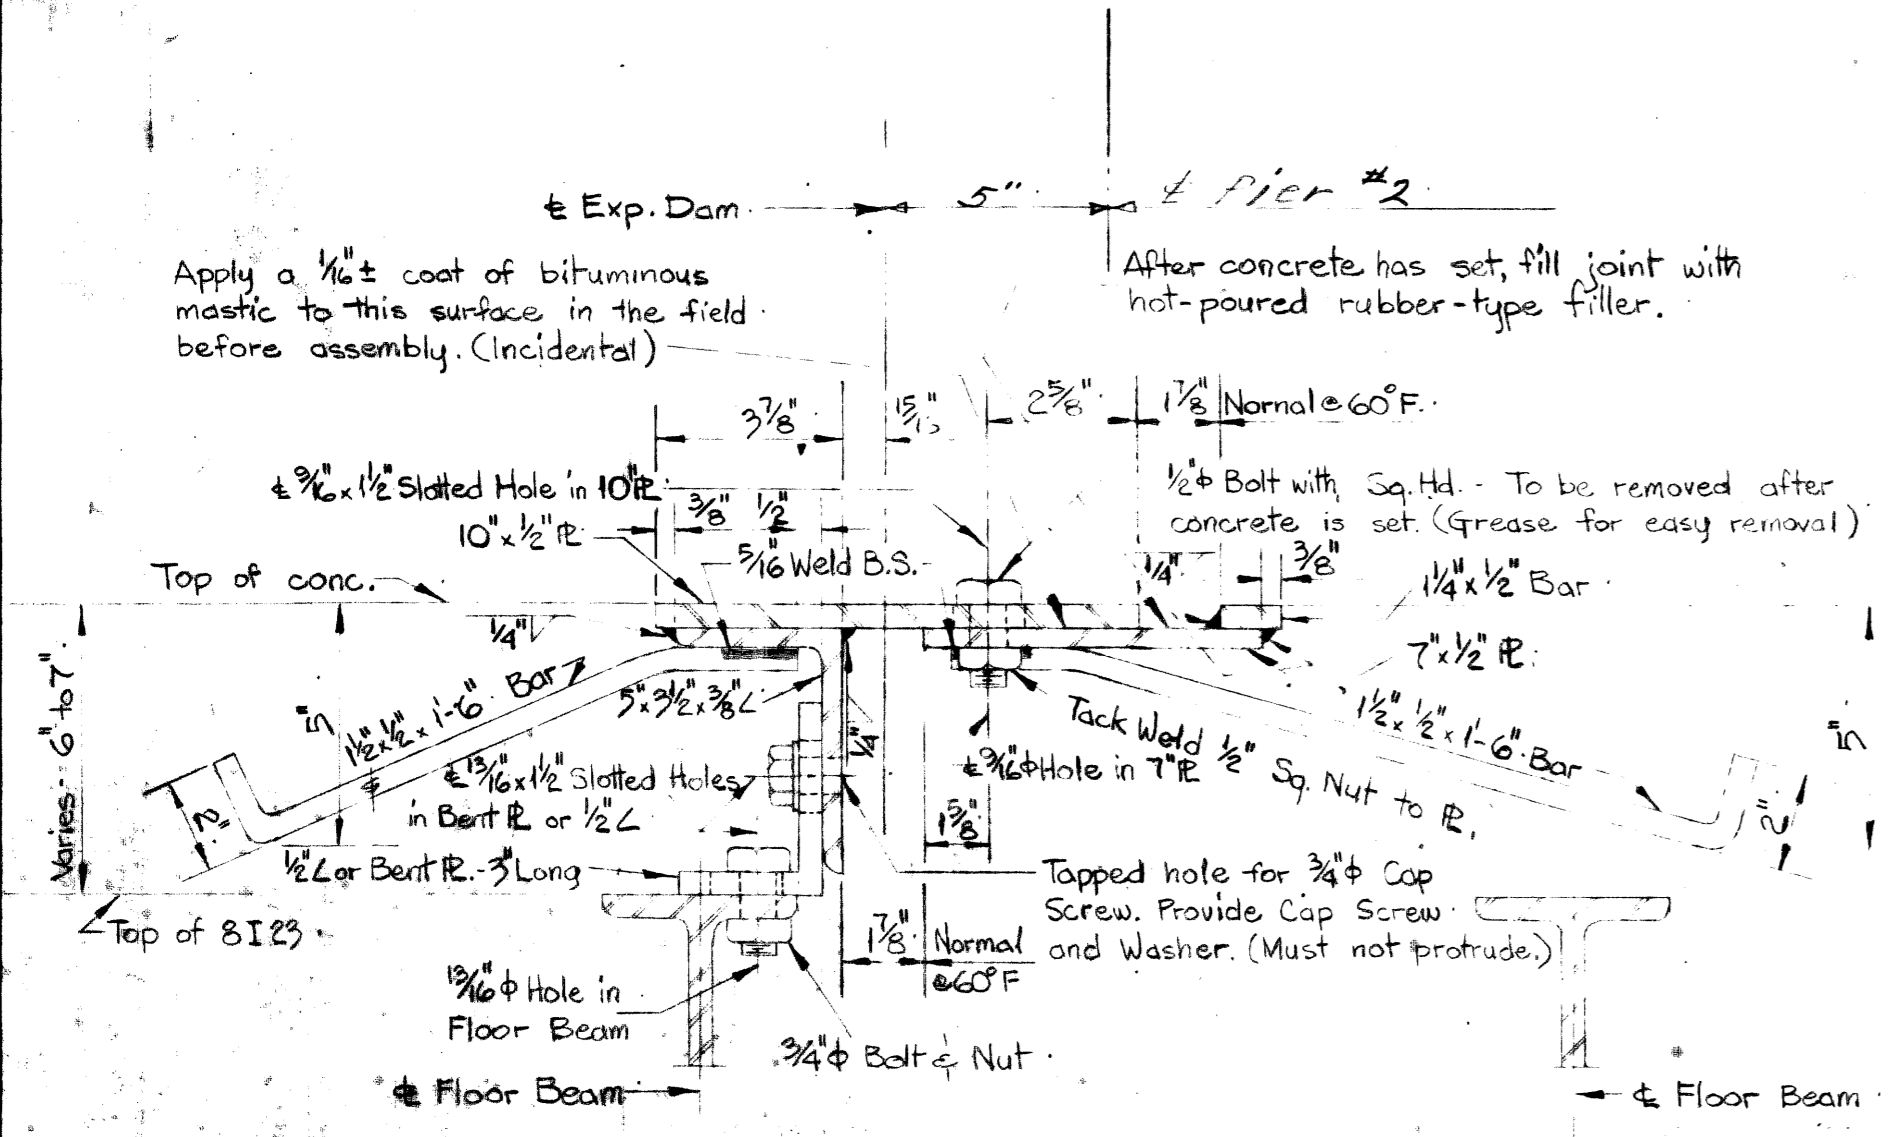 ℄ Exp. Dam
5"
℄ Pier #2
Apply a 1/16"± coat of bituminous
mastic to this surface in the field
before assembly. (Incidental)
After concrete has set, fill joint with
hot-poured rubber-type filler.
3 7/8"
2 5/8"
1 7/8"
Nornal @ 60°F.
℄ 9/16" x 1 1/2" Slotted Hole in 10" ℙL
3/8"
1/2"
10" x 1/2" ℙL
5/16 Weld B.S.
1/2"ϕ Bolt with Sq. Hd. - To be removed after
concrete is set. (Grease for easy removal)
1/4"
3/8"
Top of conc.
1 1/4" x 1/2" Bar
1/4"
7" x 1/2" ℙL
Varies - 6" to 7"
5"
1 1/2" x 1/2" x 1'-6" Bar
5" x 3 1/2" x 3/8" ∠
1/4"
Tack Weld 1/2" Sq. Nut to ℙL.
1 1/2" x 1/2" x 1'-6" Bar
5"
℄ 13/16" x 1 1/2" Slotted Holes
in Bent ℙL or 1/2" ∠
℄ 9/16" ϕ Hole in 7" ℙL
2"
2"
1 5/8"
1/2" ∠ or Bent ℙL. - 3" Long
Top of 8 I 23
Tapped hole for 3/4"ϕ Cap
Screw. Provide Cap Screw
and Washer. (Must not protrude.)
1 7/8"
Normal
@60°F
13/16" ϕ Hole in
Floor Beam
3/4"ϕ Bolt & Nut
℄ Floor Beam
℄ Floor Beam